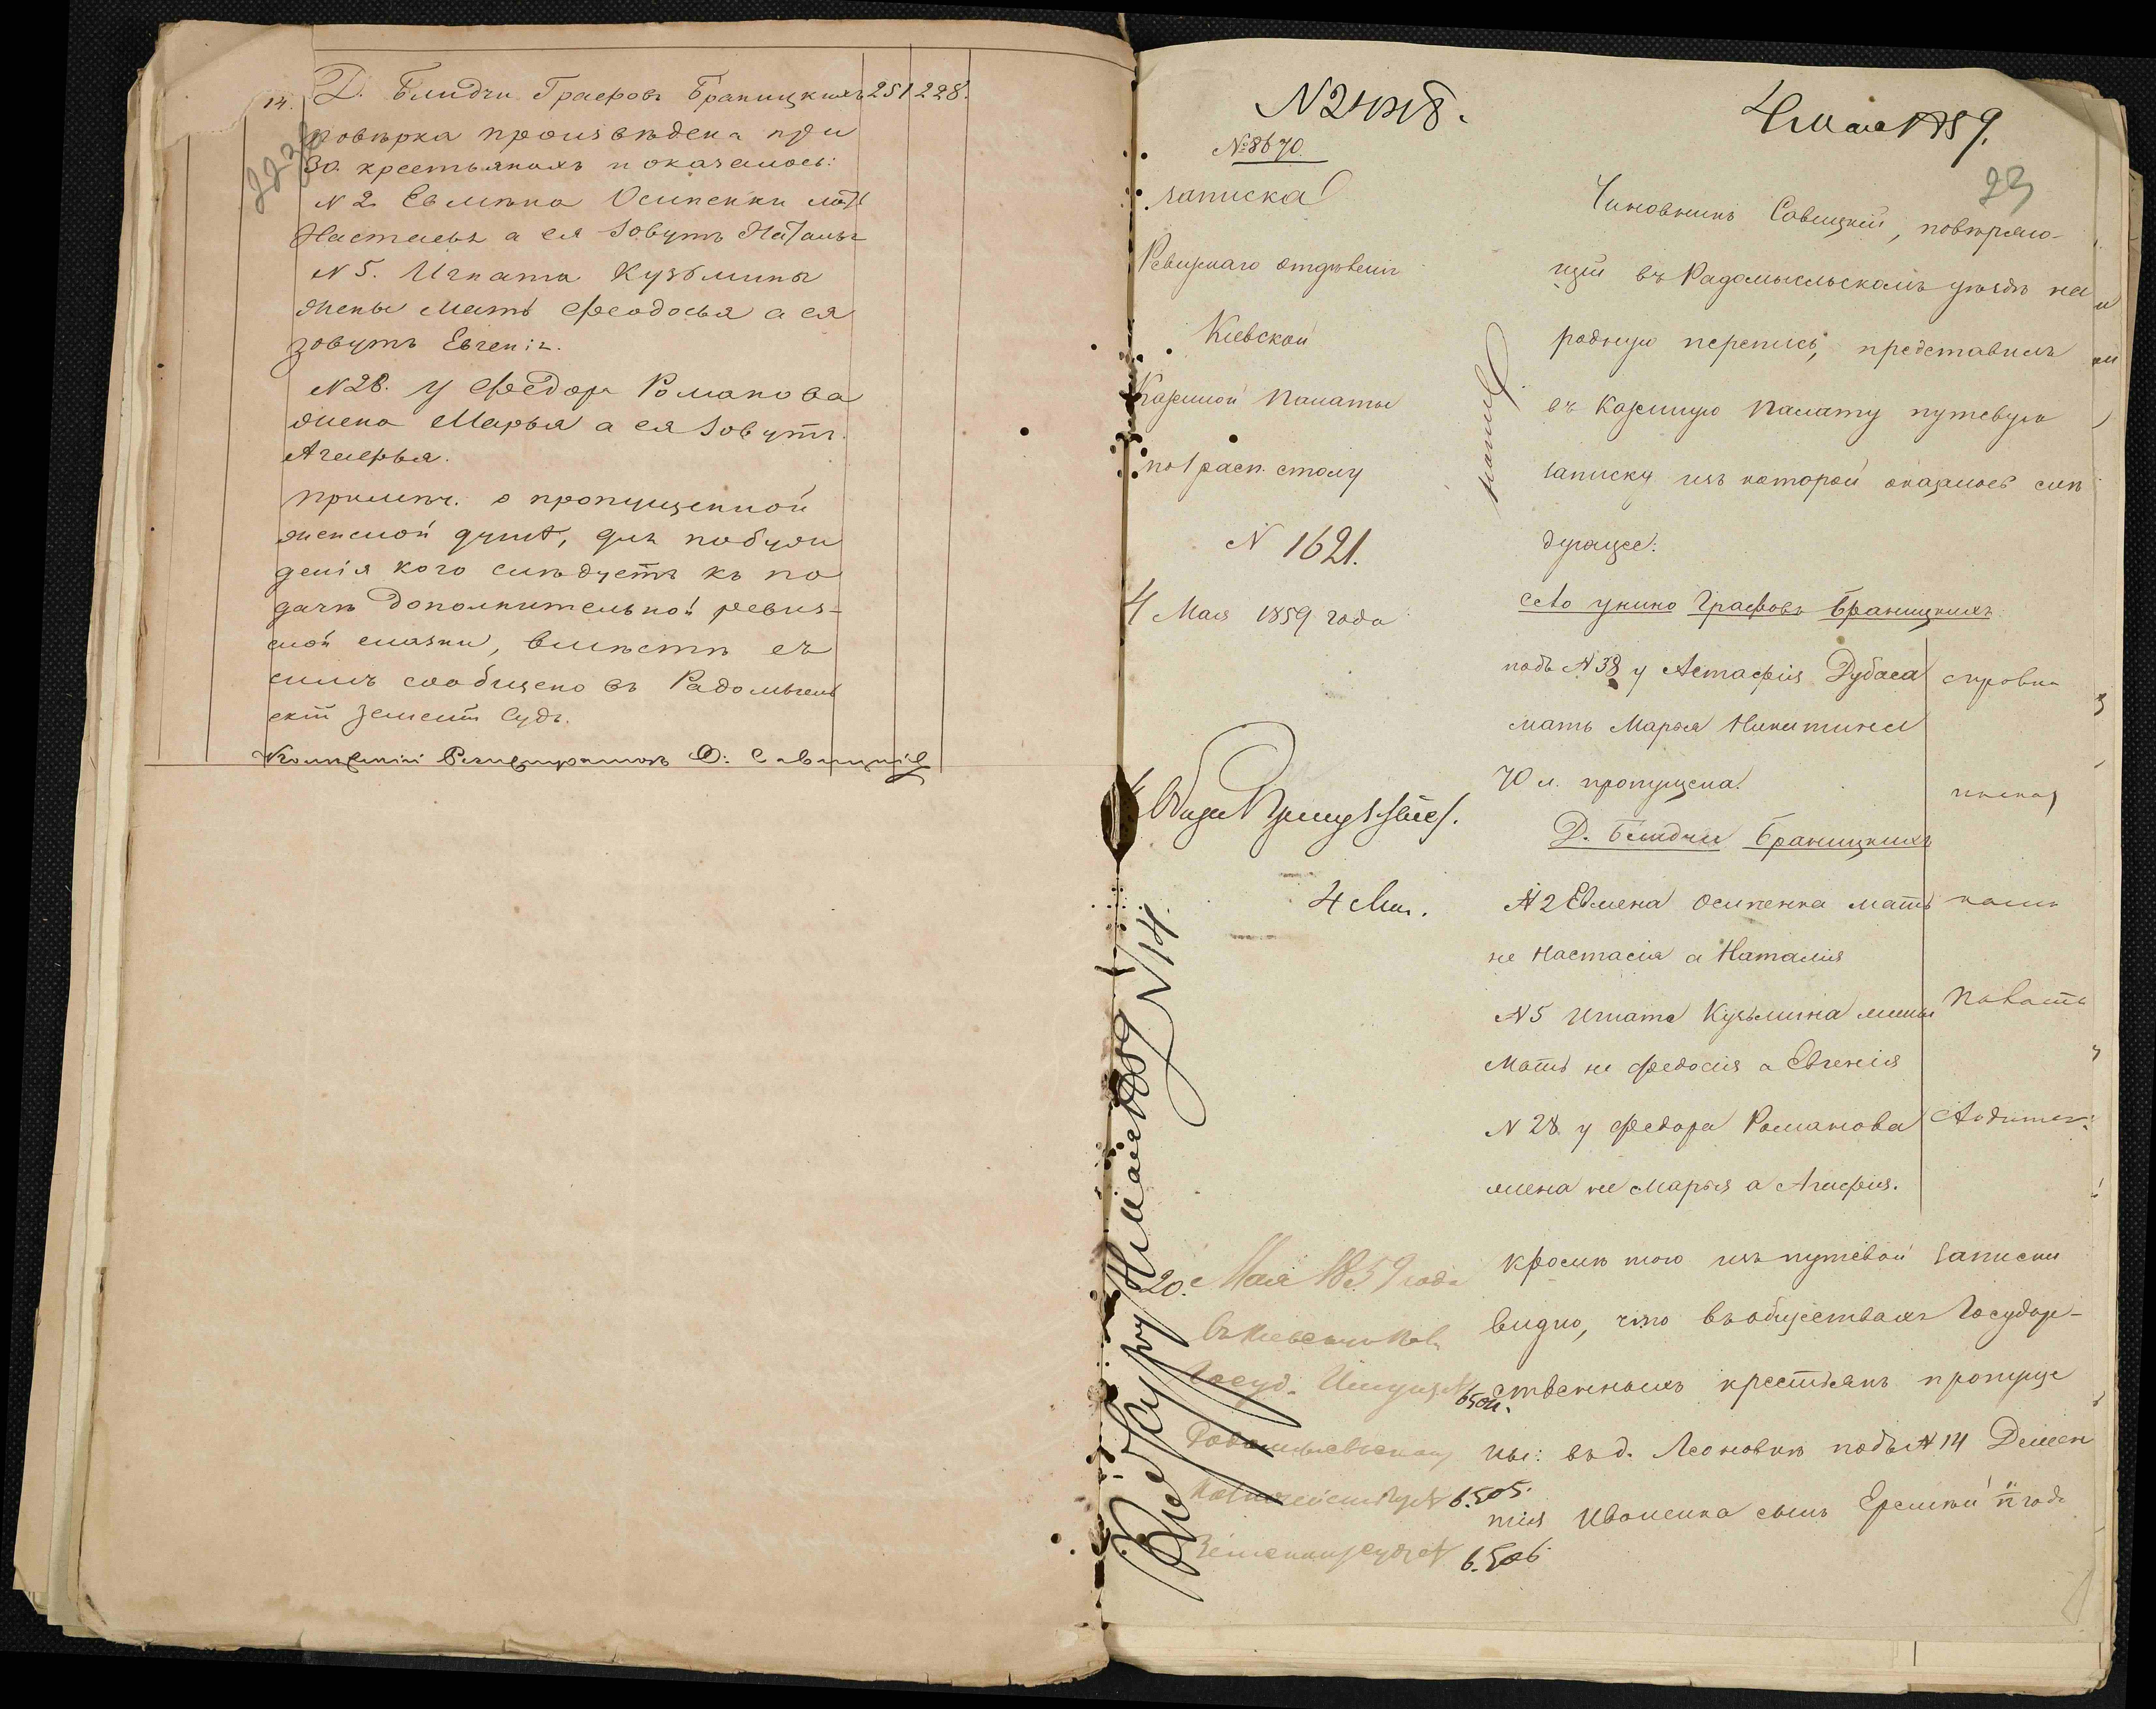 14. Д. Блидчи Графовъ Браницкихъ 251 228.
повѣрка произвѣдена при
30. крестьянахъ и оказалось:
N 2. Евмѣна Осипенки мать
Настасья а ея зовутъ Наталья
N 5. Игната Кузьмины
жены Мать Феодосья а ея
зовутъ Евгенія.
N 28. у Федора Романова
жена Марья а ея зовутъ
Агафья.
Примѣч. о пропущенной
женской душѣ, для побуж
денія кого слѣдуетъ къ по
дачѣ дополнительной ревиз-
ской сказки, вмѣстѣ съ
симъ сообщено въ Радомысль
скій Земскій Судъ.
Коллежскій Регистраторъ Савицкій
4 Мая 1859.
№ 8670.
23
записка
Ревизскаго отдѣленія
Кіевской
Казенной Палаты
по 1 расп. столу
N 1621.
4 Мая 1859 года
4 Мая.
Чиновникъ Савицкій, повѣряю-
щій въ Радомысльскомъ уѣздѣ на
родную перепись, представилъ
въ Казенную Палату путевую
записку изъ которой оказалось слѣ
дующее:
село Унино Графовъ Браницкихъ
подъ N 38 у Астафія Дубаса
мать Марья Никитина
70 л. пропущена.
Д. Блидчи Браницкихъ
N 2 Евмена Осипенка мать
не Настасія а Наталія
N 5 Игната Кузьмина жены
Мать не Федосія а Евгенія
N 28 у Федора Романова
жена не Марья а Агафія.
кромѣ того изъ путевой записки
видно, что въ обществахъ Государ-
ственныхъ крестьянъ пропуще
ны: въ д. Леоновкѣ подъ N 14 Демен
тія Иваненка сынъ Еремѣй
N 14
20. Мая 1859 года
Госуд. Имущ. N 6504.
6.505.
Земскому суду N 6.506